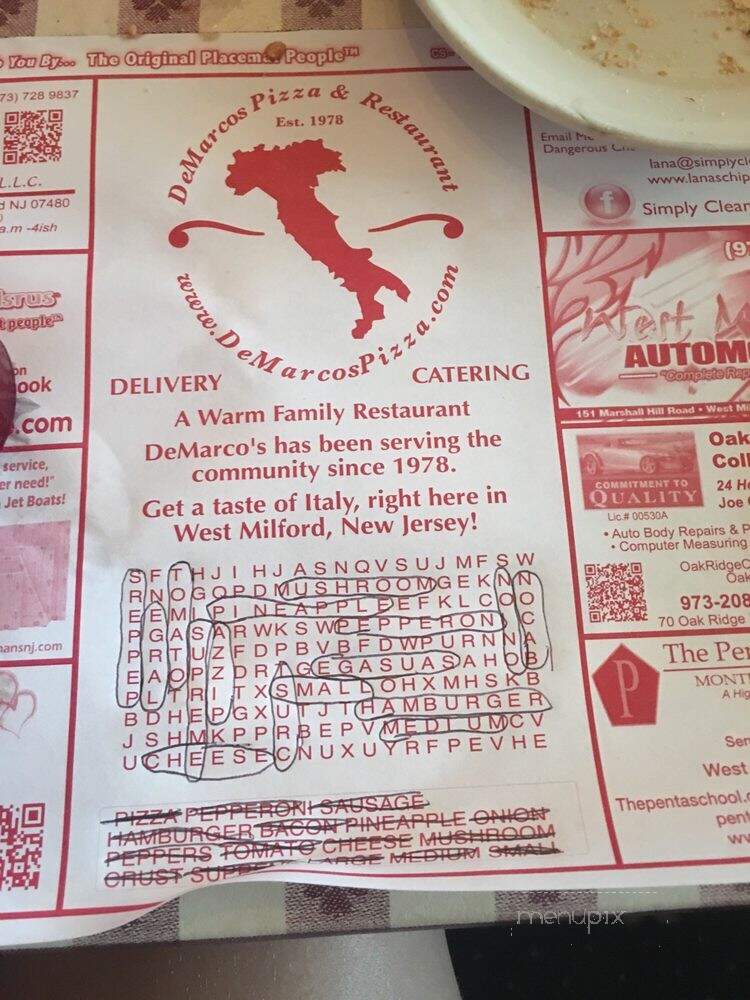 You By... The Original Placemat People™
73) 728 9837
L.L.C.
NJ 07480
a.m -4ish
people™
ook
.com
service,
er need!"
Jet Boats!
ansnj.com
DeMarcos Pizza & Restaurant
Est. 1978
www.DeMarcosPizza.com
DELIVERY CATERING
A Warm Family Restaurant
DeMarco's has been serving the
community since 1978.
Get a taste of Italy, right here in
West Milford, New Jersey!
S F T H J I H J A S N Q V S U J M F S W
R N O G Q P D M U S H R O O M G E K N N
E E M L P I N E A P P L E E F K L C O O
P G A S A R W K S W P E P P E R O N I C
P R T U Z F D P B V B F D W P U R N N A
E A O P Z D R A G E G A S U A S A H O B
P L T R I T X S M A L L O H X M H S K B
B D H E P G X U T J T H A M B U R G E R
J S H M K P P R B E P V M E D I U M C V
U C H E E S E C N U X U Y R F P E V H E
PIZZA PEPPERONI SAUSAGE
HAMBURGER BACON PINEAPPLE ONION
PEPPERS TOMATO CHEESE MUSHROOM
CRUST LARGE MEDIUM SMALL
Email
Dangerous
lana@simplycl
www.lanaschip
f
Simply Clean
(9
West
AUTOM
"Complete Rep
151 Marshall Hill Road • West Mi
COMMITMENT TO
QUALITY
Lic.# 00530A
Oak
Coll
24 Ho
Joe
• Auto Body Repairs & P
• Computer Measuring
OakRidgeC
Oak
973-208
70 Oak Ridge
P
The Pen
MONT
A Hig
Ser
West
Thepentaschool.
pent
menupix